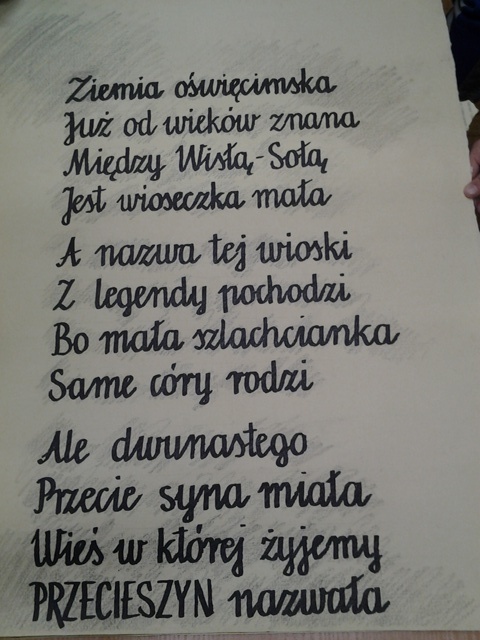 Ziemia oświęcimska
Już od wieków znana
Między Wisłą-Sołą
Jest wioseczka mała
A nazwa tej wioski
Z legendy pochodzi
Bo mała szlachcianka
Same córy rodzi
Ale dwunastego
Przecie syna miała
Wieś w której żyjemy
PRZECIESZYN nazwała